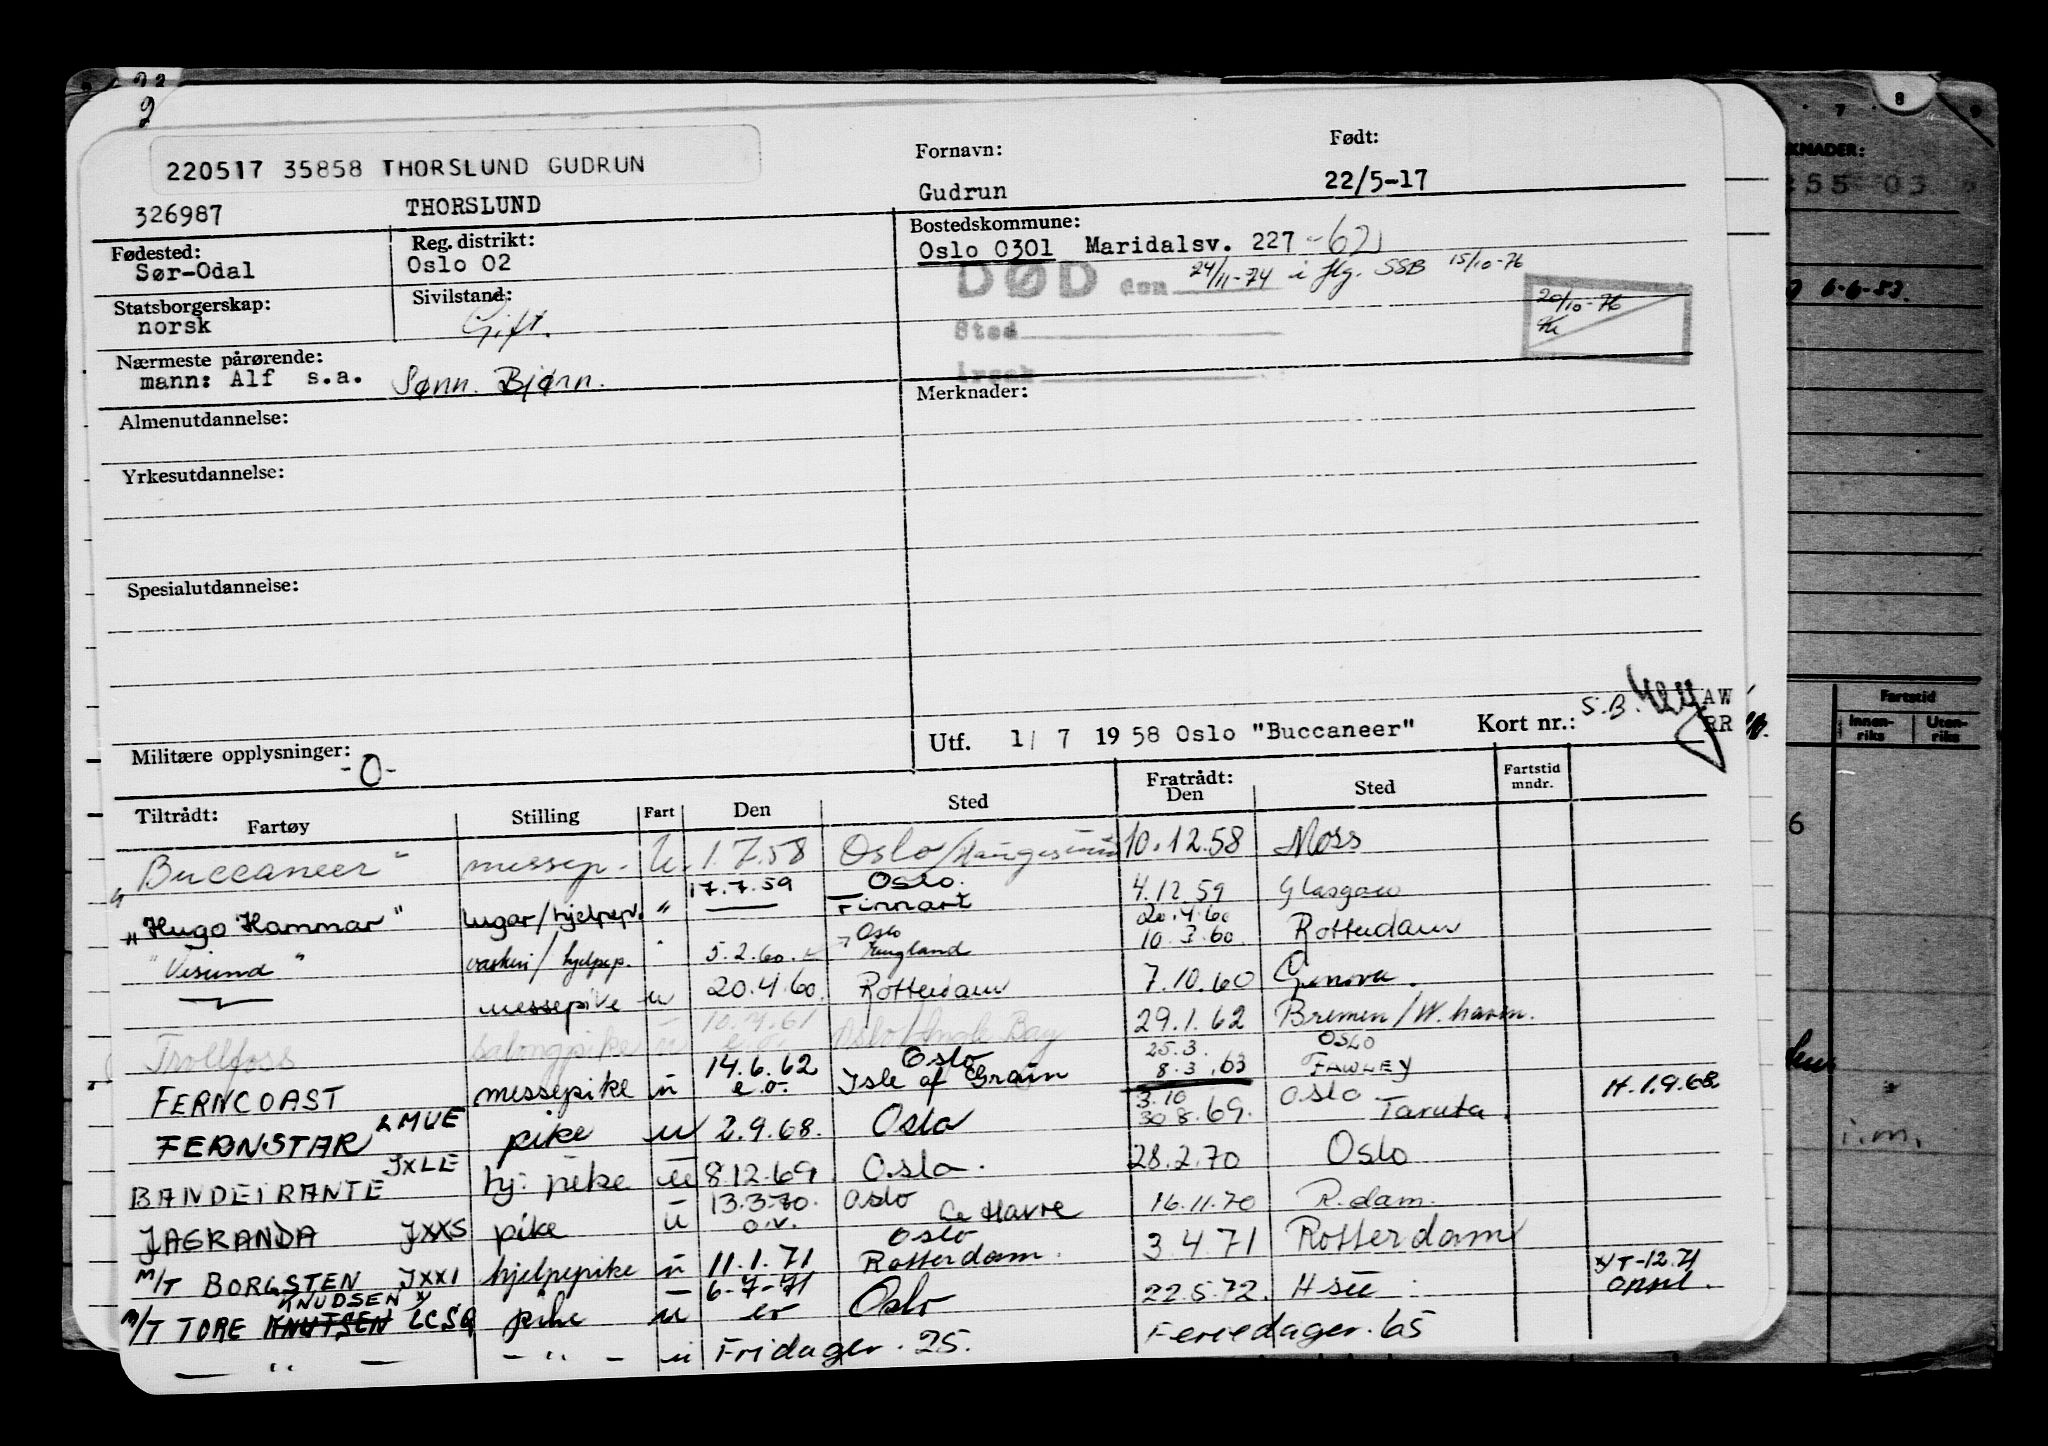 9
220517 35858 THORSLUND GUDRUN
Fornavn:
Født:
326987 THORSLUND Gudrun 22/5-17
Fødested:
Sør-Odal
Reg. distrikt:
Oslo 02
Bostedskommune:
Oslo 0301 Maridalsv. 227 -62
DØD den 24/11-74 i flg. SSB 15/10-76
Statsborgerskap:
norsk
Sivilstand:
Gift.
Sted
20/10-76
Årsak
Nærmeste pårørende:
mann: Alf s.a. Sønn. Bjørn.
Almenutdannelse:
Merknader:
Yrkesutdannelse:
Spesialutdannelse:
Militære opplysninger:
-0-
Utf. 1/ 7 1958 Oslo "Buccaneer" Kort nr.: S.B.
AW
RR
Tiltrådt:
Fartøy Stilling Fart Den Sted
Fratrådt:
Den Sted
Fartstid
mndr.
"Buccaneer" messep. U. 1.7.58 Oslo/Haugesund 10.12.58 Moss
"Hugo Hammar" lugar/hjelpep. " 17.7.59 Oslo. Finnart 4.12.59 Glasgow
"Visund" vaskeri/hjelpep. " 5.2.60. Oslo England 20.4.60 10.3.60. Rotterdam
messepike u 20.4.60. Rotterdam 7.10.60 Genova.
Trollfoss salongpike u 10.4.61 29.1.62 Bremen/W.havn.
FERNCOAST messepike u 14.6.62 e.o. Oslo Isle of Grain 25.3. 8.3.63 OSLO FAWLEY
FERNSTAR LMUE pike u 2.9.68. Oslo 3.10 30.8.69. Oslo H.1.9.68.
BANDEIRANTE JXLE hj. pike u 8.12.69. Oslo. 28.2.70 Oslo
JAGRANDA JXXS pike u 13.3.70. o.v. Oslo Le Havre 16.11.70 R.dam.
M/T BORGSTEN JXXI hjelpepike u 11.1.71 Oslo Rotterdam. 3.4.71 Rotterdam
M/T TORE KNUTSEN KNUDSEN x) LCSQ pike u 6-7-71 Oslo 22.5.72. x) T-12.71
— " — - " - u Fridager. 25. Feriedager. 65
KNADER:
6-6-53.
Fartstid
Innen-
riks
Uten-
riks
6
i.m.
7 8 9